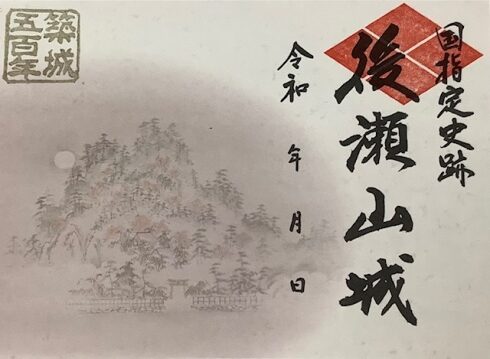 国指定史跡
後瀬山城
令和 年 月 日
築城
五百年